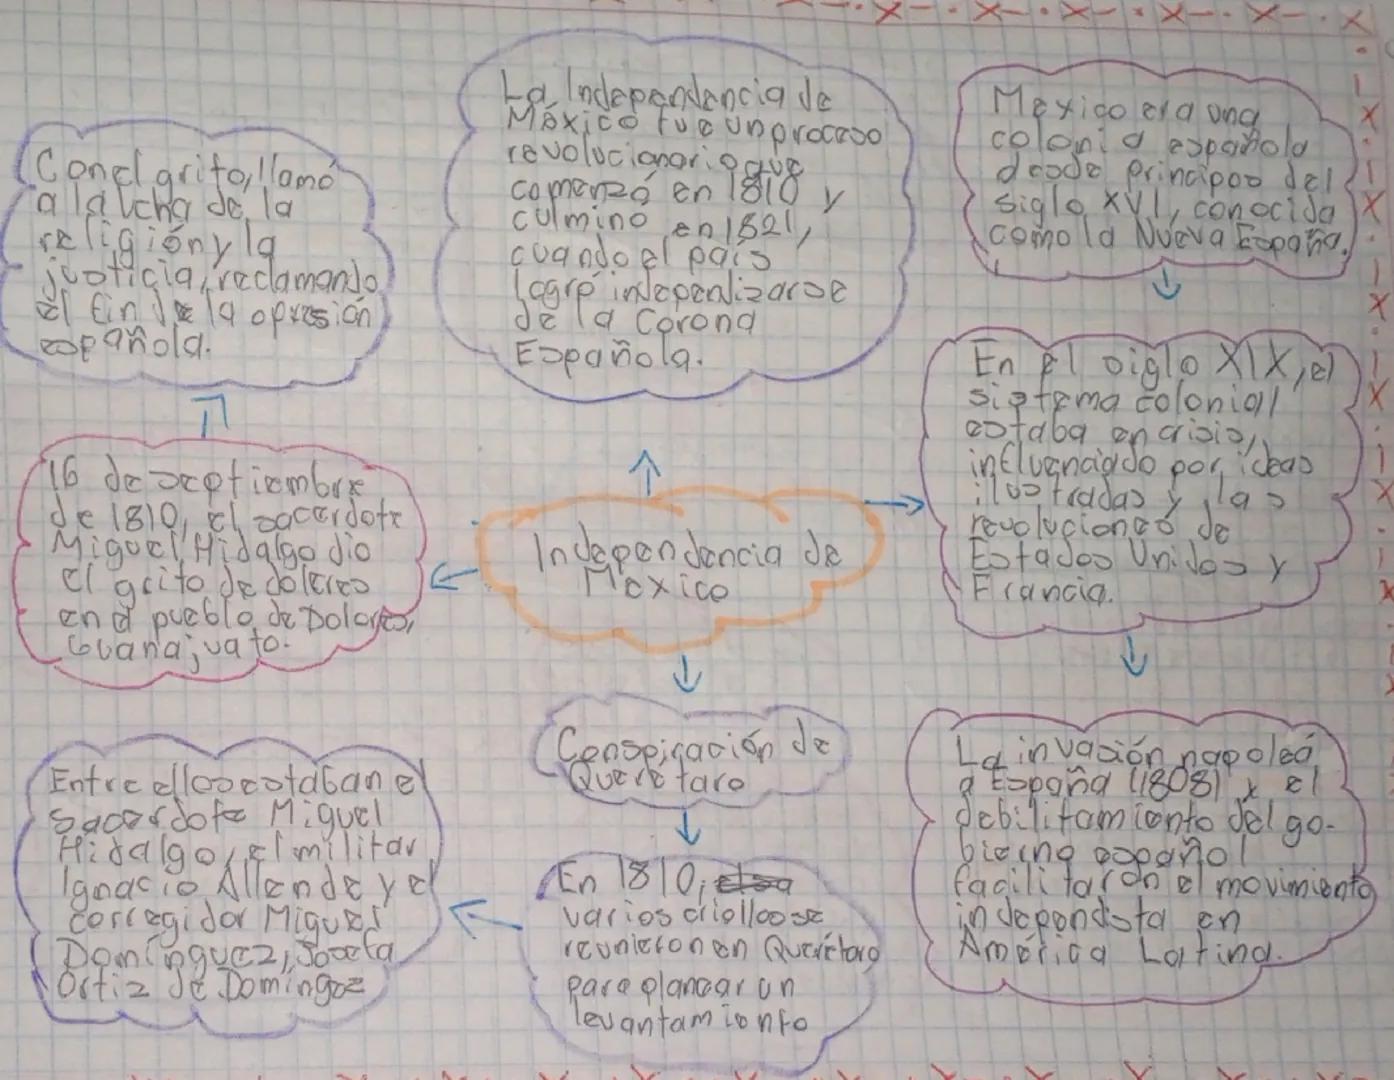 La Independencia de
México fue un proceso
revolucionario que
comenzó en 1810 y
culmino en 1821,
cuando el país
logró indepenlizarse
de la Corona
Española.
Mexico era una
colonia española
desde principos del
siglo XVI, conocida
como la Nueva España.
Con el grito, llamó
a la lucha de la
religión y la
justicia, reclamando
el fin de la opresión
española.
En el siglo XIX, el
sistema colonial
estaba en crisis,
influenciado por ideas
ilustradas y las
revoluciones de
Estados Unidos y
Francia.
16 de septiembre
de 1810, el sacerdote
Miguel Hidalgo dio
el grito de dolores
en el pueblo de Dolores,
Guanajuato.
Independencia de
Mexico
Conspiración de
Querétaro
La invasión napoleó
a España (1808) y el
debilitamiento del go-
bierno español
facilitaron el movimiento
indepondista en
América Latina.
Entre ellos estaban el
sacerdote Miguel
Hidalgo, el militar
Ignacio Allende y el
corregidor Miguel
Domínguez, Josefa
Ortiz de Domingoz
En 1810,
varios criollos se
reunieron en Querétaro
para planear un
levantamiento